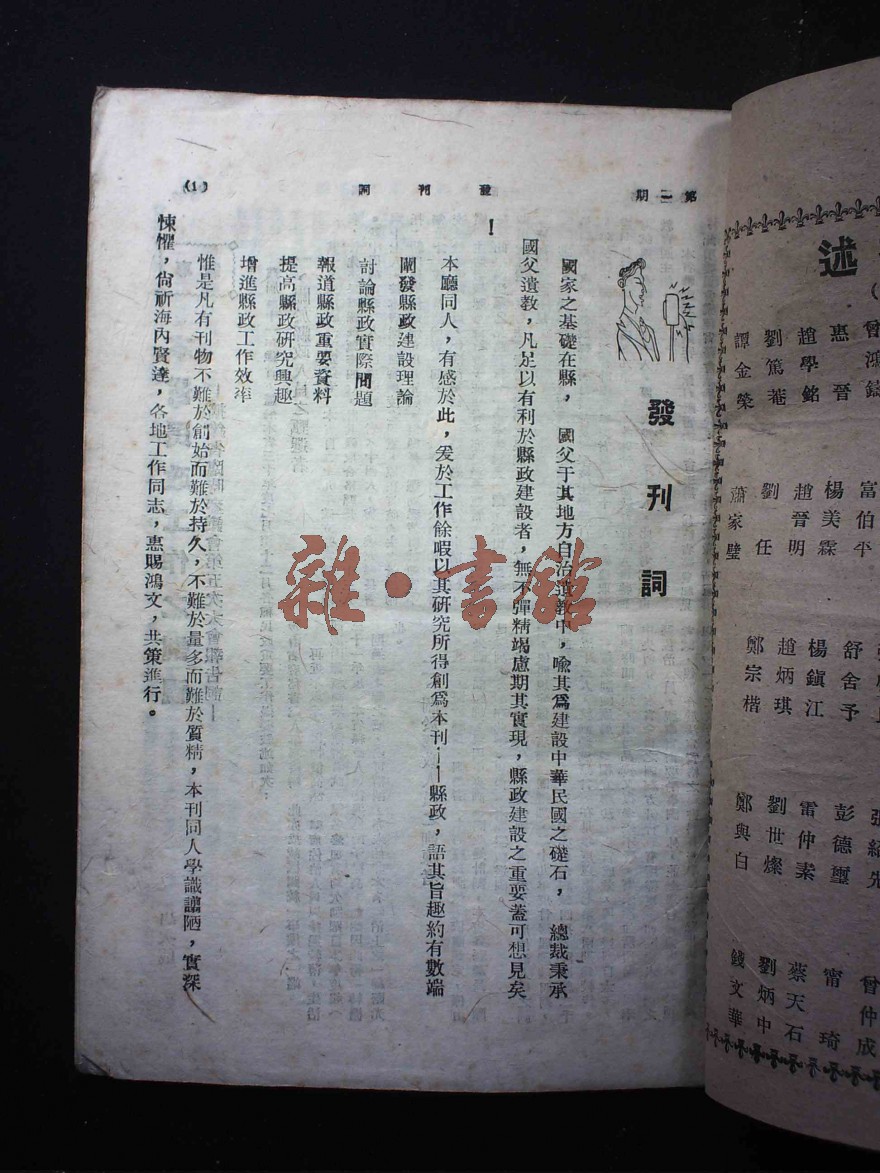 第一期
發刊詞
(1)
發刊詞
國家之基礎在縣，　國父于其地方自治遺教中，喩其爲建設中華民國之礎石，　總裁秉承
國父遺教，凡足以有利於縣政建設者，無不彈精竭慮期其實現，縣政建設之重要蓋可想見矣
！
本廳同人，有感於此，爰於工作餘暇以其研究所得創爲本刊——縣政，語其旨趣約有數端
闡發縣政建設理論
討論縣政實際問題
報道縣政重要資料
提高縣政研究興趣
增進縣政工作效率
惟是凡有刊物不難於創始而難於持久，不難於量多而難於質精，本刊同人學識譾陋，實深
悚懼，尙祈海內賢達，各地工作同志，惠賜鴻文，共策進行。
雜·書館
述
惠晉　楊美霖　舒舍予　彭德璽　甯琦
趙學銘　趙晉明　楊鎭江　雷仲素　蔡天石
劉篤菴　劉任　趙炳琪　劉世燦　劉炳中
譚金榮　蕭家璧　鄭宗楷　鄭與白　錢文華
富伯平
曾仲成